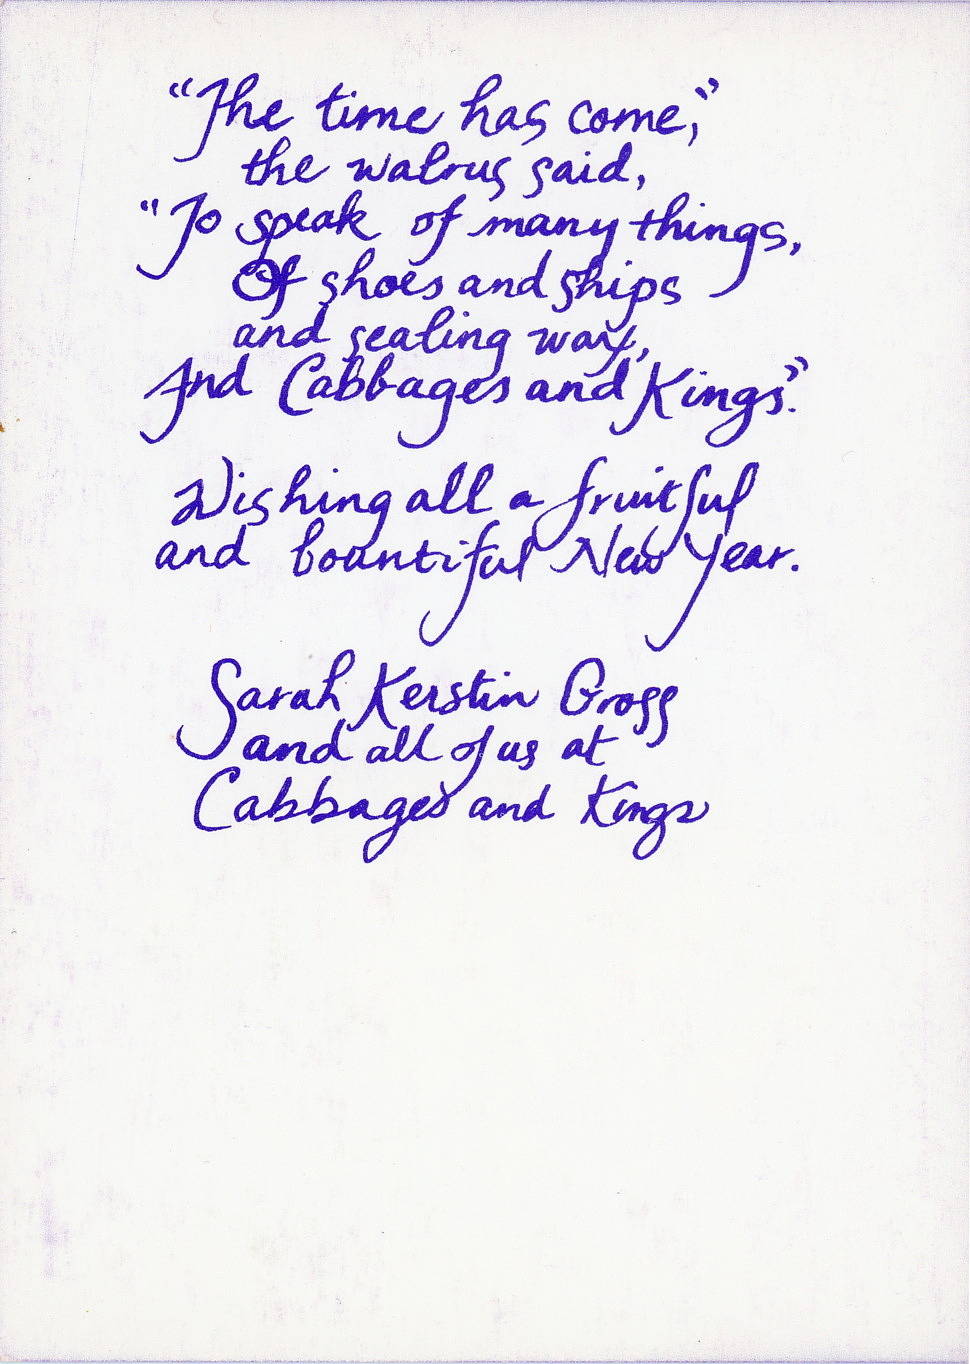 "The time has come,"
the walrus said,
"To speak of many things,
Of shoes and ships
and sealing wax,
And Cabbages and Kings."
Wishing all a fruitful
and bountiful New Year.
Sarah Kerstin Gross
and all of us at
Cabbages and Kings